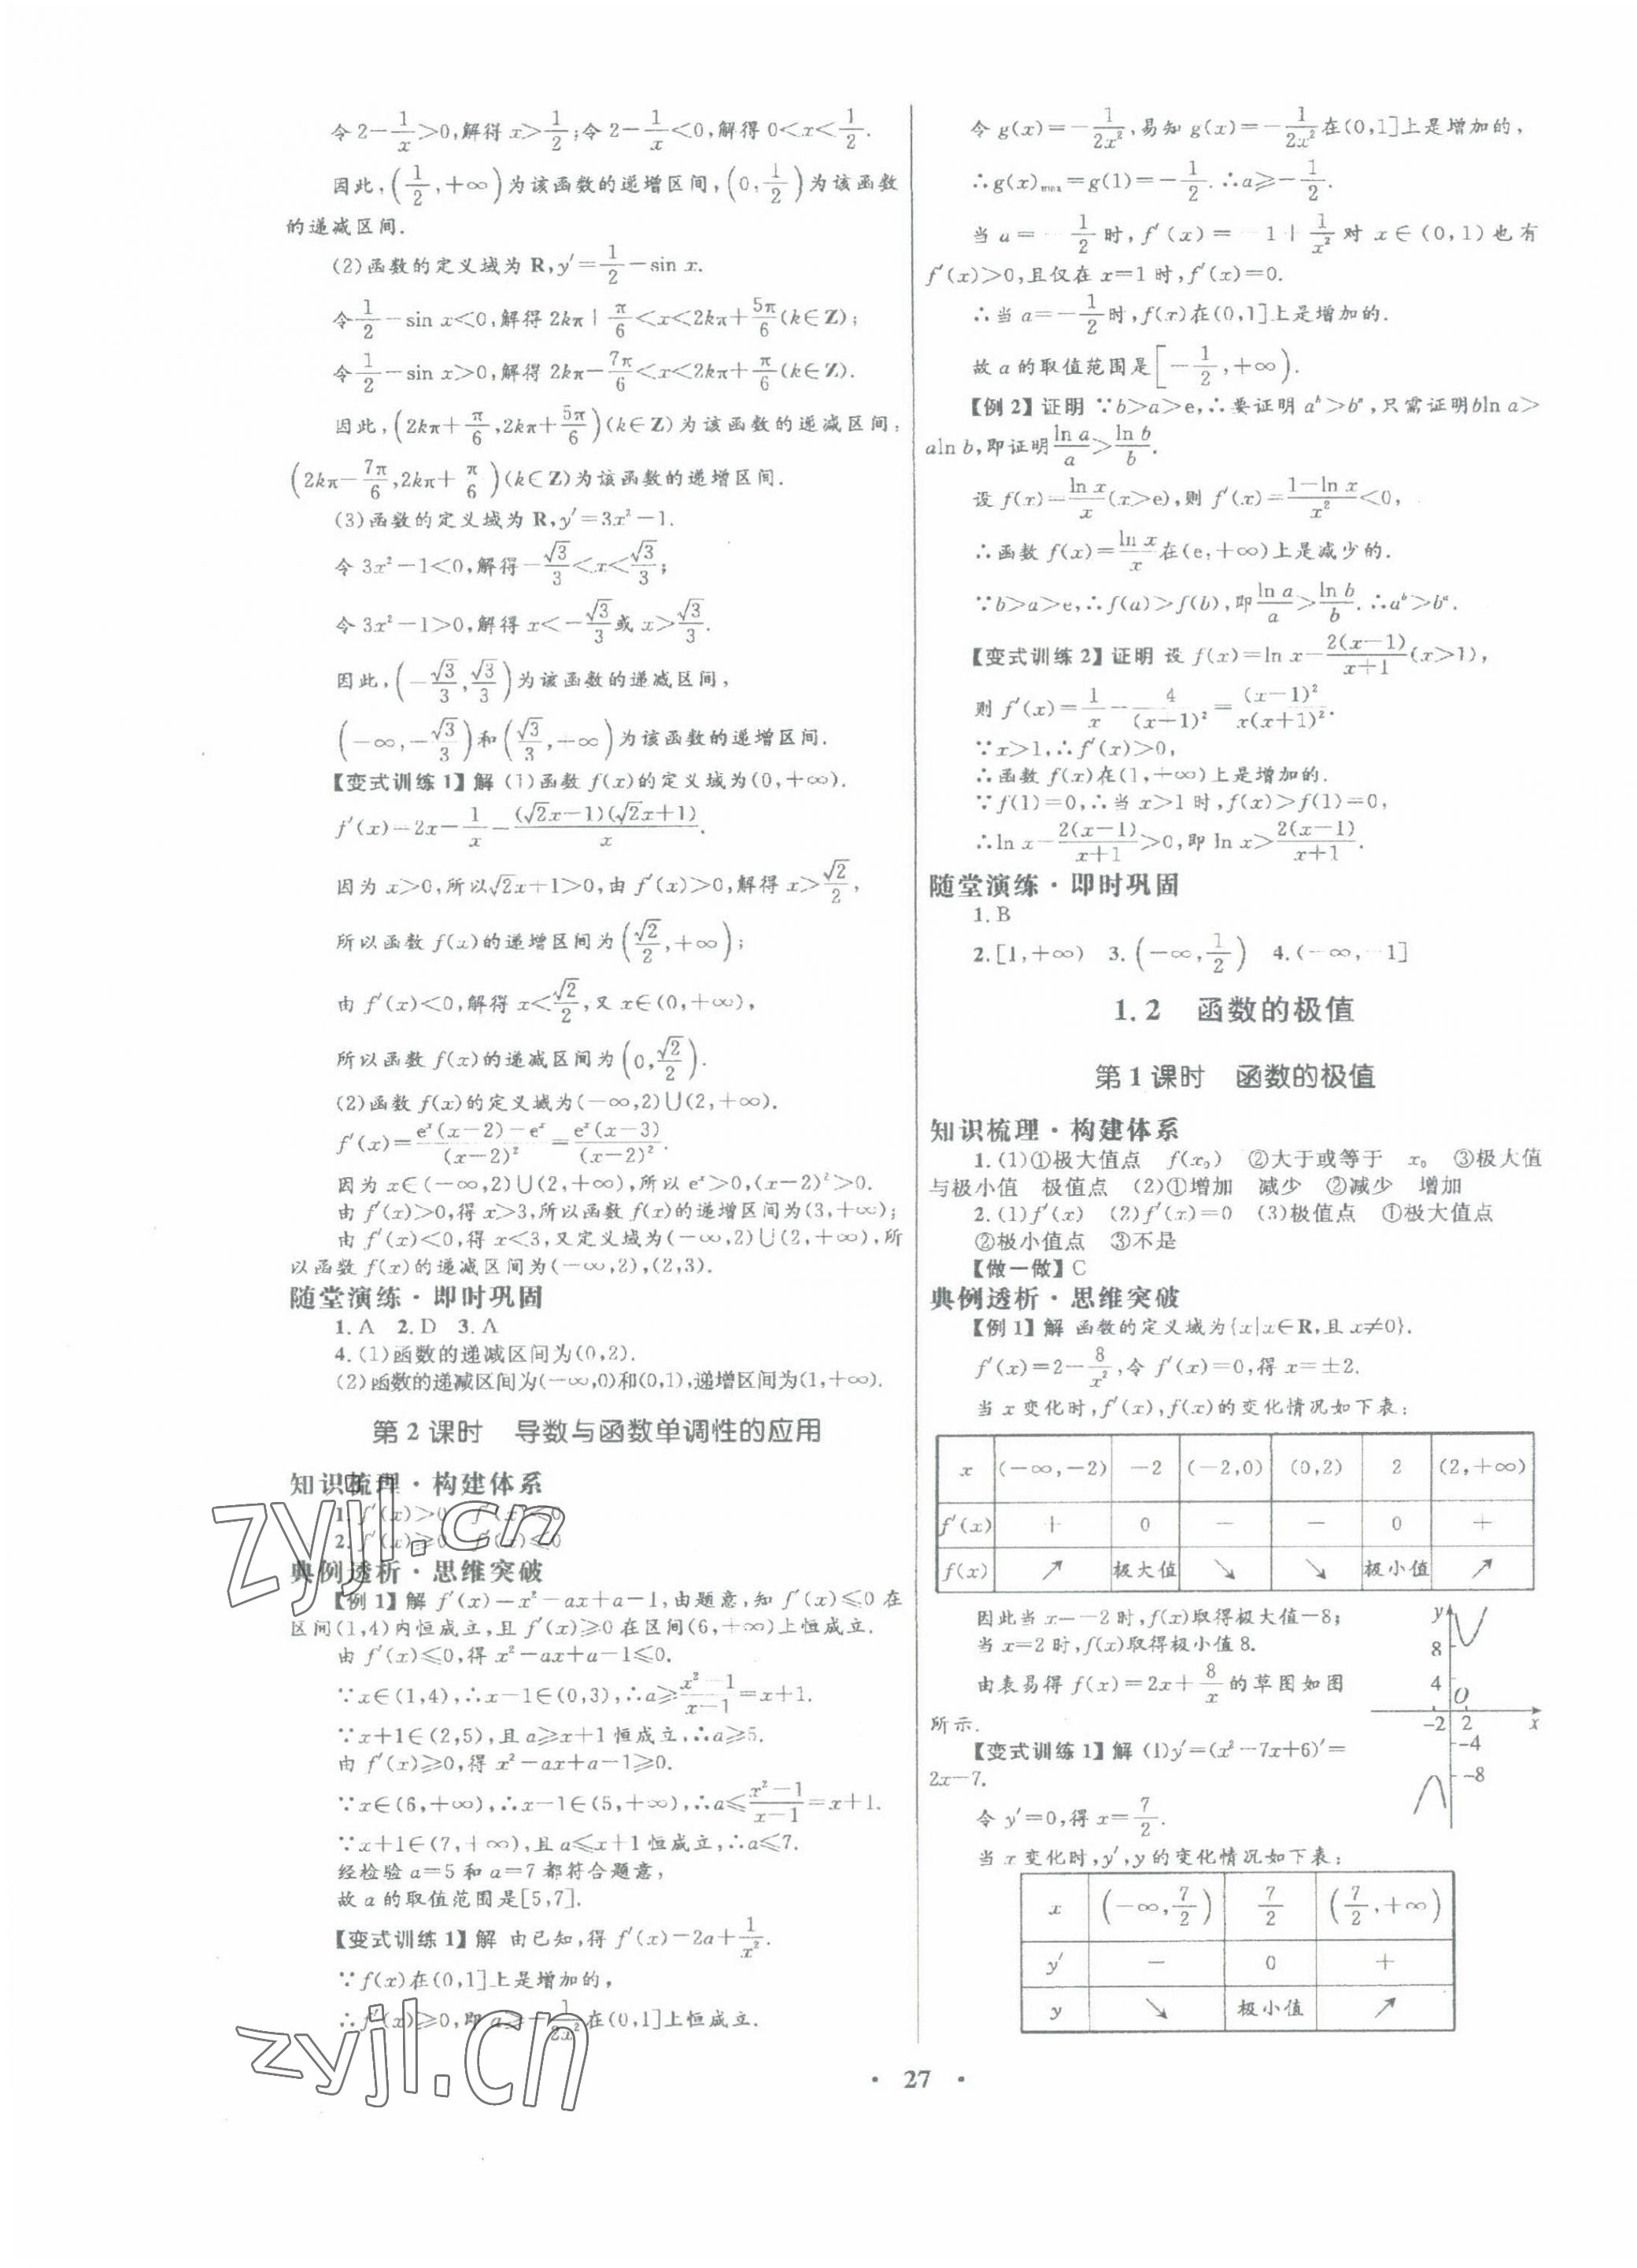 令2-1/x>0,解得x>1/2;令2-1/x<0,解得0<x<1/2.
因此,(1/2,+∞)为该函数的递增区间,(0,1/2)为该函数
的递减区间.
(2)函数的定义域为R,y′=1/2-sin x.
令1/2-sin x<0,解得2kπ+π/6<x<2kπ+5π/6(k∈Z);
令1/2-sin x>0,解得2kπ-7π/6<x<2kπ+π/6(k∈Z).
因此,(2kπ+π/6,2kπ+5π/6)(k∈Z)为该函数的递减区间,
(2kπ-7π/6,2kπ+π/6)(k∈Z)为该函数的递增区间.
(3)函数的定义域为R,y′=3x²-1.
令3x²-1<0,解得-√3/3<x<√3/3;
令3x²-1>0,解得x<-√3/3或x>√3/3.
因此,(-√3/3,√3/3)为该函数的递减区间,
(-∞,-√3/3)和(√3/3,+∞)为该函数的递增区间.
【变式训练1】解 (1)函数f(x)的定义域为(0,+∞).
f′(x)=2x-1/x=(√2x-1)(√2x+1)/x.
因为x>0,所以√2x+1>0,由f′(x)>0,解得x>√2/2,
所以函数f(x)的递增区间为(√2/2,+∞);
由f′(x)<0,解得x<√2/2,又x∈(0,+∞),
所以函数f(x)的递减区间为(0,√2/2).
(2)函数f(x)的定义域为(-∞,2)∪(2,+∞).
f′(x)=[eˣ(x-2)-eˣ]/(x-2)²=eˣ(x-3)/(x-2)².
因为x∈(-∞,2)∪(2,+∞),所以eˣ>0,(x-2)²>0.
由f′(x)>0,得x>3,所以函数f(x)的递增区间为(3,+∞);
由f′(x)<0,得x<3,又定义域为(-∞,2)∪(2,+∞),所
以函数f(x)的递减区间为(-∞,2),(2,3).
随堂演练·即时巩固
1.A 2.D 3.A
4.(1)函数的递减区间为(0,2).
(2)函数的递减区间为(-∞,0)和(0,1),递增区间为(1,+∞).
第2课时 导数与函数单调性的应用
知识梳理·构建体系
1.f′(x)>0 f′(x)<0
2.f′(x)≥0 f′(x)≤0
典例透析·思维突破
【例1】解 f′(x)=x²-ax+a-1,由题意,知f′(x)≤0在
区间(1,4)内恒成立,且f′(x)≥0在区间(6,+∞)上恒成立.
由f′(x)≤0,得x²-ax+a-1≤0.
∵x∈(1,4),∴x-1∈(0,3),∴a≥(x²-1)/(x-1)=x+1.
∵x+1∈(2,5),且a≥x+1恒成立,∴a≥5.
由f′(x)≥0,得x²-ax+a-1≥0.
∵x∈(6,+∞),∴x-1∈(5,+∞),∴a≤(x²-1)/(x-1)=x+1.
∵x+1∈(7,+∞),且a≤x+1恒成立,∴a≤7.
经检验a=5和a=7都符合题意,
故a的取值范围是[5,7].
【变式训练1】解 由已知,得f′(x)=2a+1/x².
∵f(x)在(0,1]上是增加的,
∴f′(x)≥0,即a≥-1/2x²在(0,1]上恒成立.
令g(x)=-1/2x²,易知g(x)=-1/2x²在(0,1]上是增加的,
∴g(x)max=g(1)=-1/2.∴a≥-1/2.
当a=-1/2时,f′(x)=-1+1/x²对x∈(0,1)也有
f′(x)>0,且仅在x=1时,f′(x)=0.
∴当a=-1/2时,f(x)在(0,1]上是增加的.
故a的取值范围是[-1/2,+∞).
【例2】证明 ∵b>a>e,∴要证明aᵇ>bᵃ,只需证明bln a>
aln b,即证明ln a/a>ln b/b.
设f(x)=ln x/x(x>e),则f′(x)=(1-ln x)/x²<0,
∴函数f(x)=ln x/x在(e,+∞)上是减少的.
∵b>a>e,∴f(a)>f(b),即ln a/a>ln b/b.∴aᵇ>bᵃ.
【变式训练2】证明 设f(x)=ln x-2(x-1)/(x+1)(x>1),
则f′(x)=1/x-4/(x+1)²=(x-1)²/x(x+1)².
∵x>1,∴f′(x)>0,
∴函数f(x)在(1,+∞)上是增加的.
∵f(1)=0,∴当x>1时,f(x)>f(1)=0,
∴ln x-2(x-1)/(x+1)>0,即ln x>2(x-1)/(x+1).
随堂演练·即时巩固
1.B
2.[1,+∞) 3.(-∞,1/2) 4.(-∞,-1]
1.2 函数的极值
第1课时 函数的极值
知识梳理·构建体系
1.(1)①极大值点 f(x₀) ②大于或等于 x₀ ③极大值
与极小值 极值点 (2)①增加 减少 ②减少 增加
2.(1)f′(x) (2)f′(x)=0 (3)极值点 ①极大值点
②极小值点 ③不是
【做一做】C
典例透析·思维突破
【例1】解 函数的定义域为{x|x∈R,且x≠0}.
f′(x)=2-8/x²,令f′(x)=0,得x=±2.
当x变化时,f′(x),f(x)的变化情况如下表:
x (-∞,-2) -2 (-2,0) (0,2) 2 (2,+∞)
f′(x) + 0 - - 0 +
f(x) ↗ 极大值 ↘ ↘ 极小值 ↗
因此当x=-2时,f(x)取得极大值-8;
当x=2时,f(x)取得极小值8.
由表易得f(x)=2x+8/x的草图如图
所示.
y
8
4
O
-2 2 x
-4
-8
【变式训练1】解 (1)y′=(x²-7x+6)′=
2x-7.
令y′=0,得x=7/2.
当x变化时,y′,y的变化情况如下表:
x (-∞,7/2) 7/2 (7/2,+∞)
y′ - 0 +
y ↘ 极小值 ↗
· 27 ·
zyjl.cn
zyjl.cn